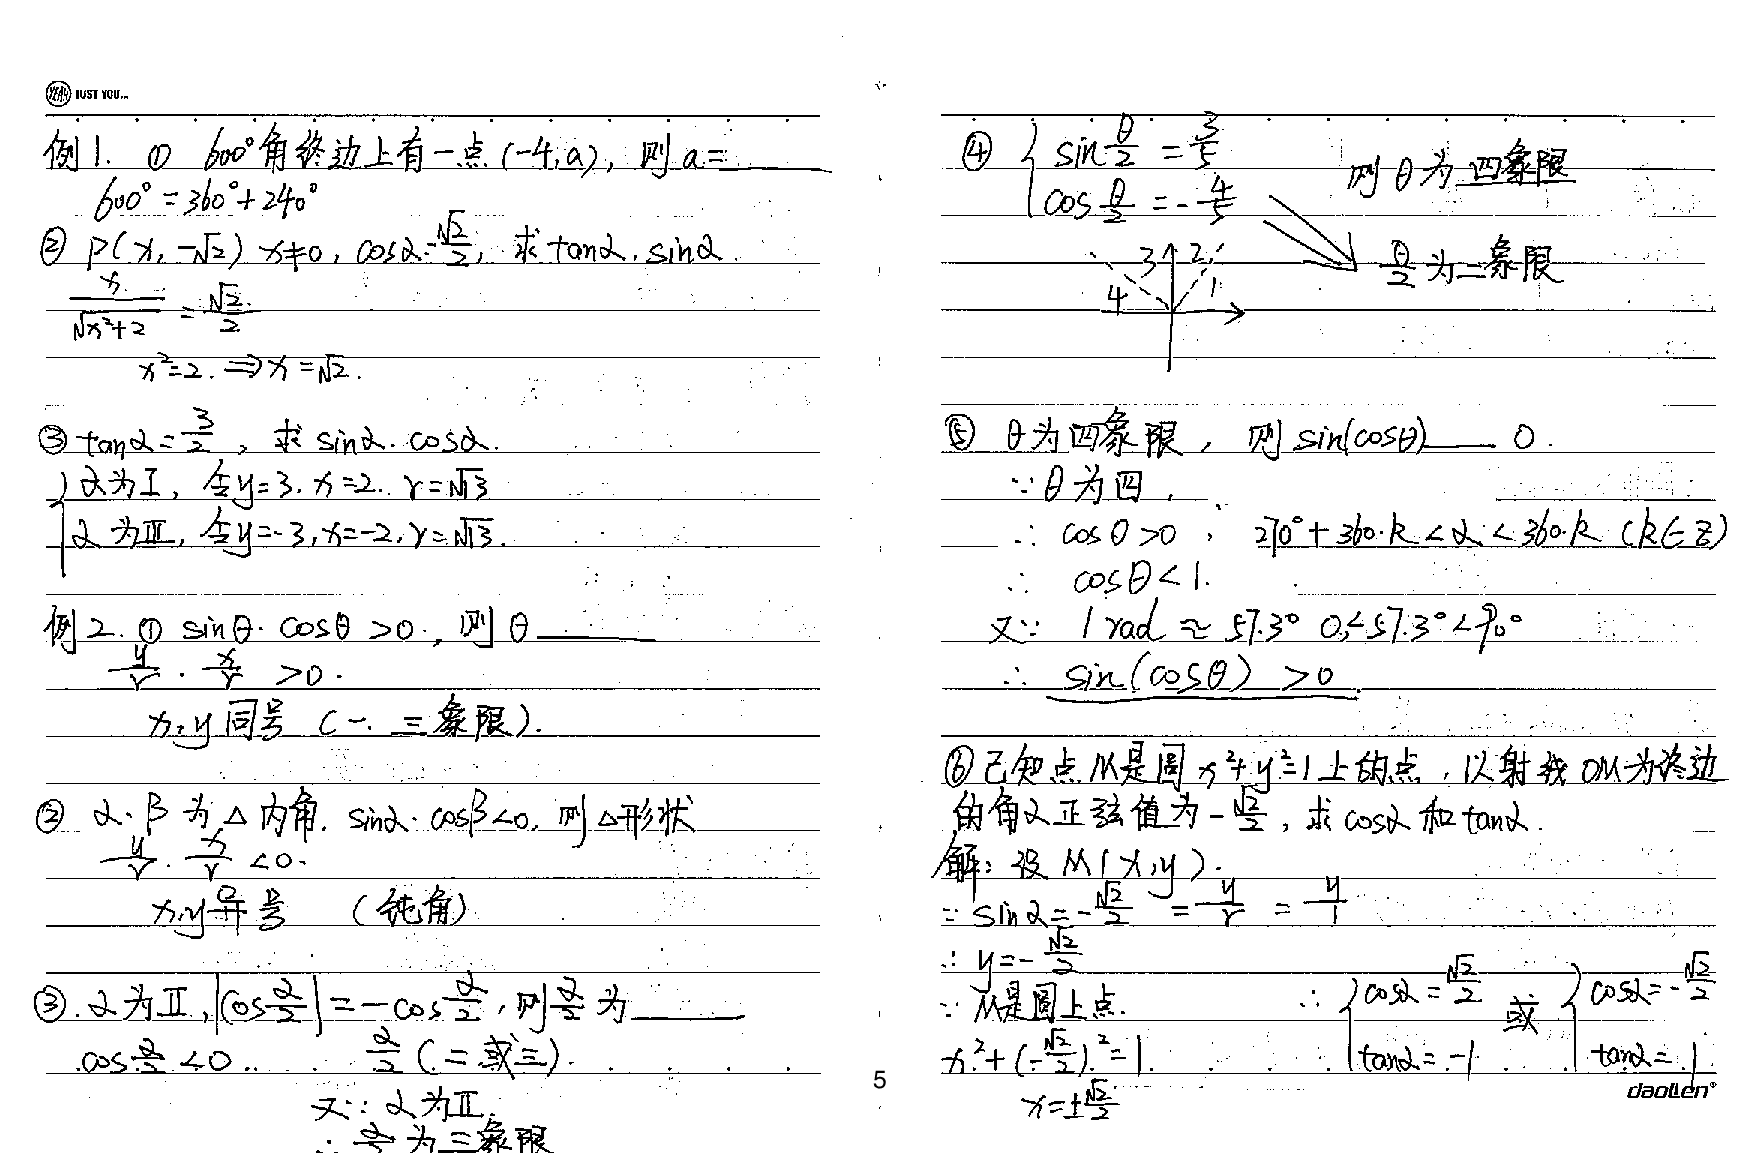 YEAH JUST YOU...
例1. ① 600°角终边上有一点(-4,a), 则a=____
600°=360°+240°
② P(x, -√2) x≠0, cosα=√2/2, 求tanα. sinα.
x/√(x²+2) = √2/2
x²=2. ⇒ x=√2.
③ tanα=3/2, 求 sinα. cosα.
{ α为Ⅰ, 令y=3. x=2. r=√13
α为Ⅲ, 令y=-3, x=-2, r=√13.
例2. ① sinθ·cosθ>0, 则θ____
y/r · x/r >0.
x,y同号 (一. 三象限).
② α. β为△内角. sinα·cosβ<0. 则△形状
y/r · x/r <0.
x,y异号 (钝角)
③. α为Ⅱ, |cos α/2| = -cos α/2, 则 α/2 为____
cos α/2 <0 α/2 (二或三).
又∵ α为Ⅱ.
∴ α/2 为三象限
④ { sin θ/2 = 3/5 则θ为四象限
cos θ/2 = -4/5
3 2 θ/2 为二象限
4 1
⑤ θ为四象限, 则sin(cosθ)____0.
∵θ为四,
∴ cosθ>0, 270°+360·k<α<360·k (k∈Z)
∴ cosθ<1.
又∵ 1 rad ≈ 57.3° 0<57.3°<90°
∴ sin(cosθ) >0
⑥已知点M是圆x²+y²=1上的点, 以射线OM为终边
的角α正弦值为-√2/2, 求cosα和tanα.
解: 设M(x,y).
∵ sinα=-√2/2 = y/r = y/1
∴ y=-√2/2
∵ M是圆上点. ∴ { cosα=√2/2 或 { cosα=-√2/2
x²+(-√2/2)²=1 tanα=-1 tanα=1.
x=±√2/2
5
daolen®